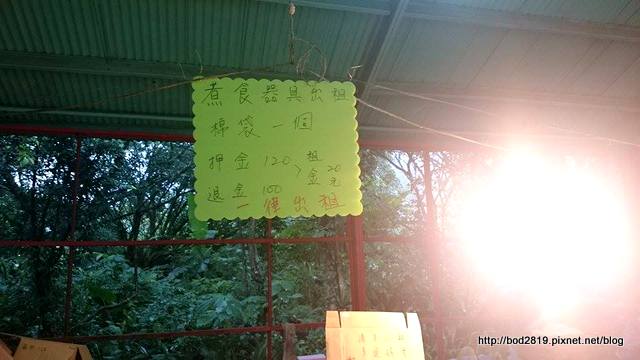 煮食器具出租
棉袋一個
押金120 租
金20元
退金100
一律出租
http://bod2819.pixnet.net/blog